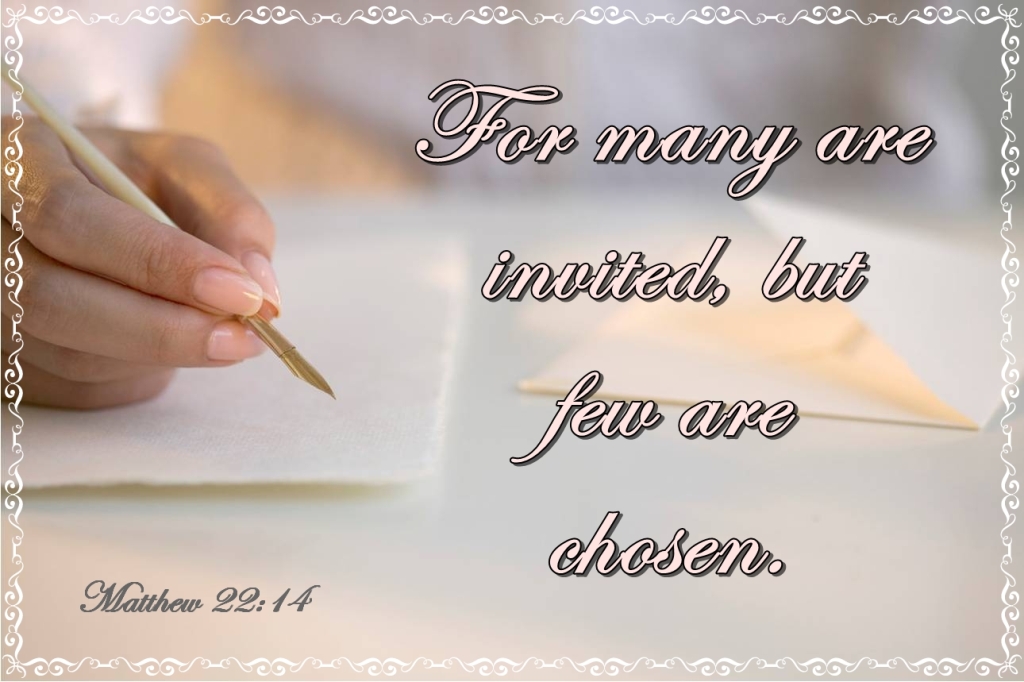 For many are
invited, but
few are
chosen.
Matthew 22:14